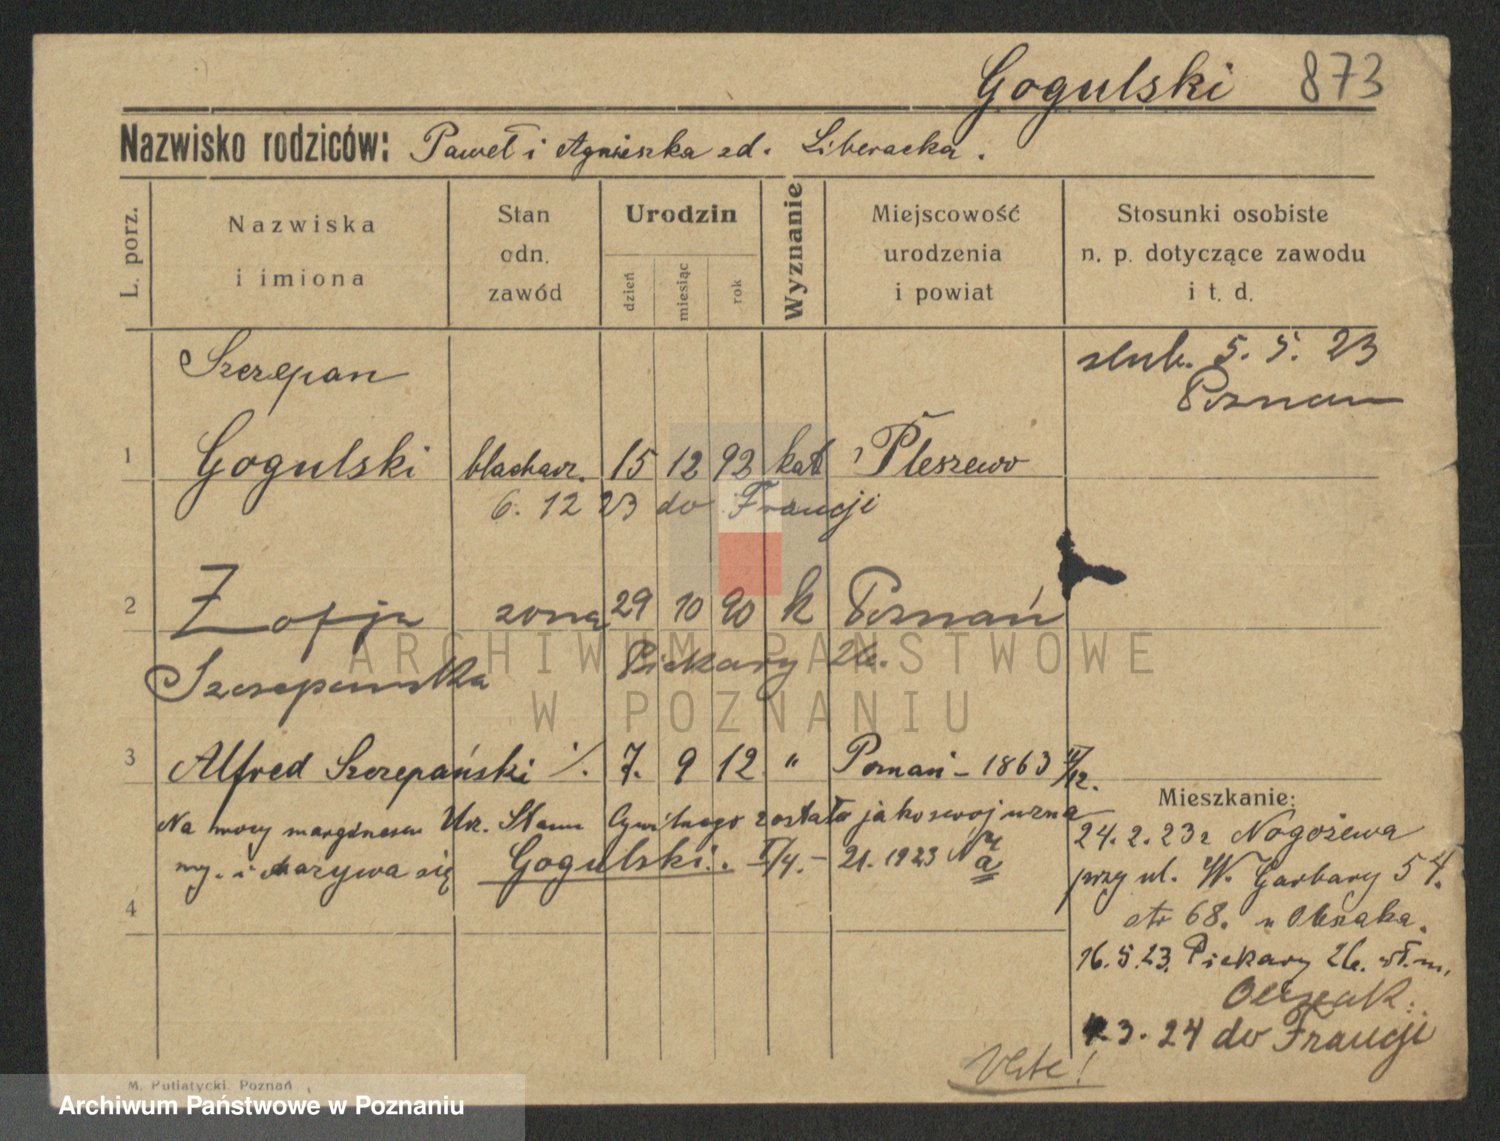 Gogulski 873
Nazwisko rodziców: Paweł i Agnieszka zd. Liberacka.
L. porz.
Nazwiska i imiona
Stan odn. zawód
Urodzin
dzień
miesiąc
rok
Wyznanie
Miejscowość urodzenia i powiat
Stosunki osobiste n. p. dotyczące zawodu i t. d.
Szczepan
ślub. 5. 5. 23
Poznań
1 Gogulski blacharz. 15 12 92 kat Pleszewo
6. 12 23 do Francji
2 Zofja żona 29 10 90 k Poznań
Szczepańska Piekary 26.
ARCHIWUM PAŃSTWOWE
W POZNANIU
3 Alfred Szczepański 7. 9 12 " Poznań - 1863
Na mocy Urz. Stanu Cywilnego został jako swój uzna
ny. i nazywa się Gogulski. 21. 1923
4
Mieszkanie:
24. 2. 23 z
przy ul. W. Garbary 54.
str 68. u
16. 5. 23. Piekary 26. wł. m.
Olszak.
3. 24 do Francji
M. Putiatycki. Poznań
Archiwum Państwowe w Poznaniu